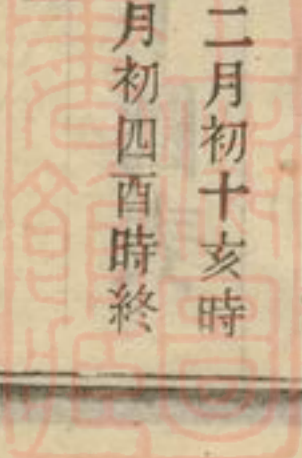 二月初十亥時
月初四酉時終